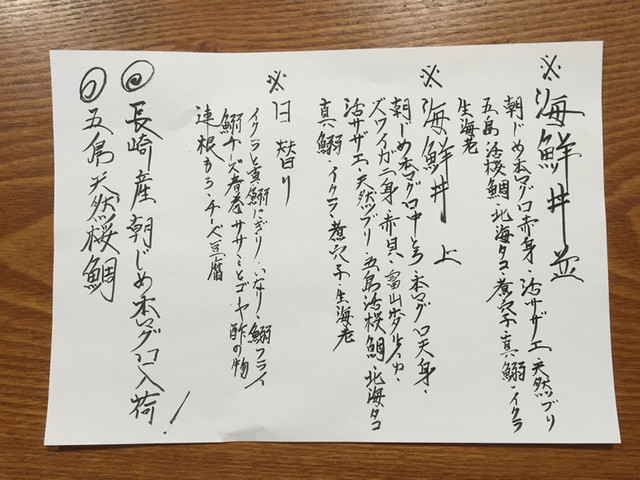 ※海鮮丼 並
朝じめ本マグロ赤身・活サザエ・天然ブリ
五島活桜鯛・北海タコ・煮穴子・真鰯・イクラ
生海老
※海鮮丼 上
朝じめ本マグロ中とろ・本マグロ天身・
ズワイガニ身・赤貝・富山ホタルイカ・
活サザエ・天然ブリ・五島活桜鯛・北海タコ
真鰯・イクラ・煮穴子・生海老
※日替り
イクラと真鰯にぎり/いなり・鰯フライ
鰯チーズ春巻・ササミとゴーヤ酢の物
蓮根もち・チーズ豆腐
◎長崎産朝じめ本マグロ入荷!
◎五島天然桜鯛